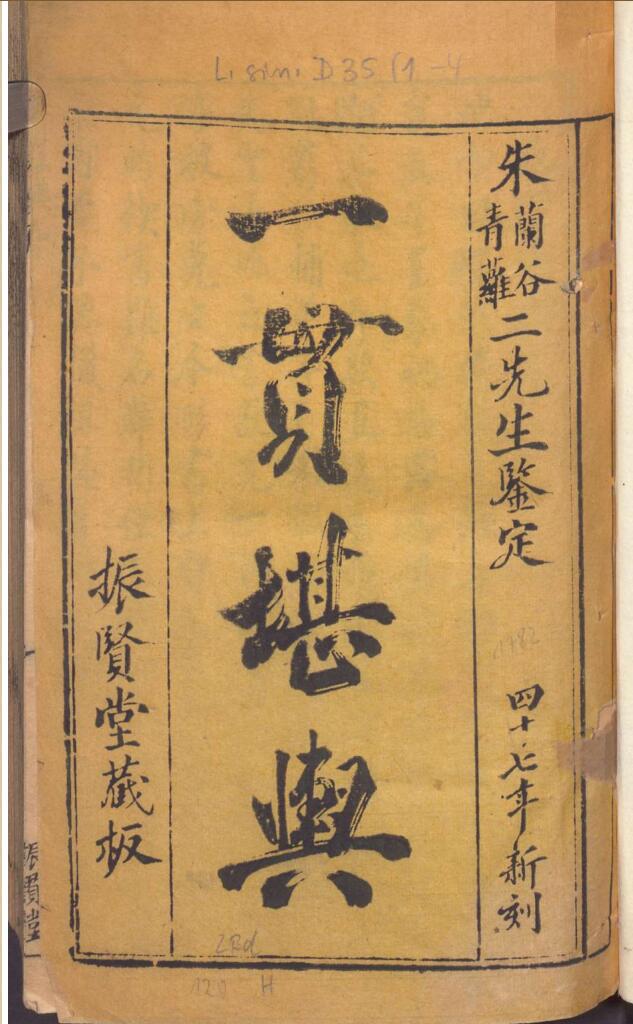 L. sin. D 35 (1-4
朱蘭谷青蘿二先生鑒定
四十七年新刻
一貫堪輿
振賢堂藏板
1782
120 H